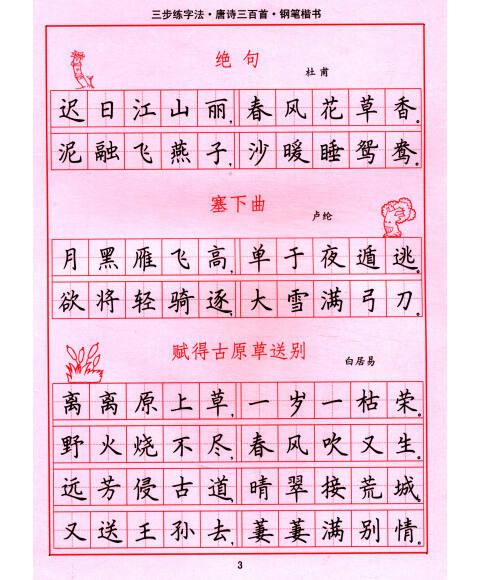 三步练字法·唐诗三百首·钢笔楷书
绝句
杜甫
迟日江山丽，春风花草香。
泥融飞燕子，沙暖睡鸳鸯。
塞下曲
卢纶
月黑雁飞高，单于夜遁逃。
欲将轻骑逐，大雪满弓刀。
赋得古原草送别
白居易
离离原上草，一岁一枯荣。
野火烧不尽，春风吹又生。
远芳侵古道，晴翠接荒城。
又送王孙去，萋萋满别情。
3